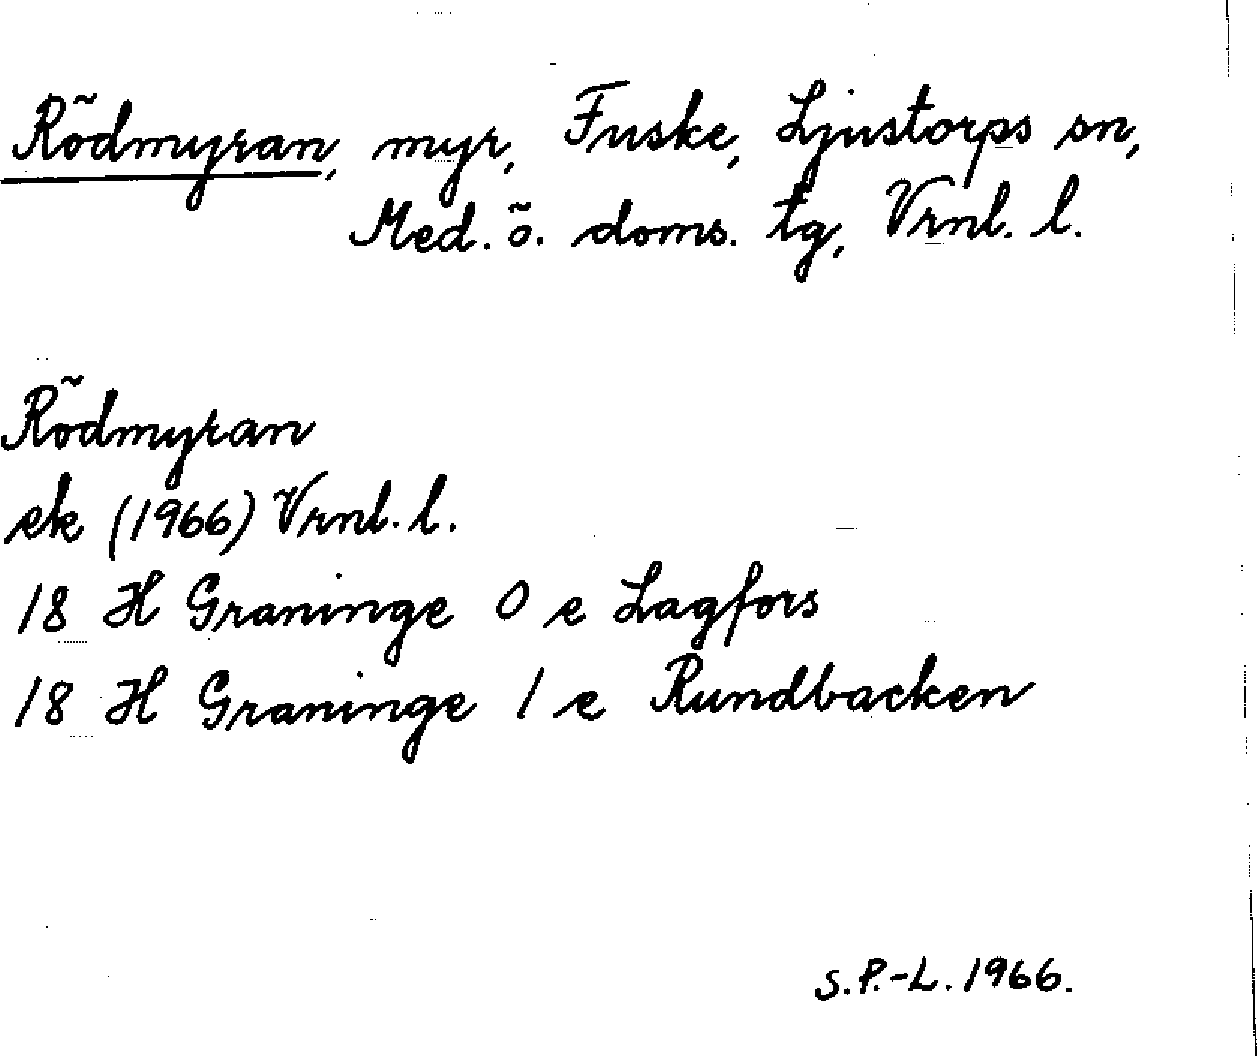 Rödmyran, myr, Fuske, Ljustorps sn,
Med. ö. doms. tg, Vrnl. l.
Rödmyran
ek (1966) Vrnl. l.
18 H Graninge 0 e Lagfors
18 H Graninge 1 e Rundbacken
S.P.-L. 1966.